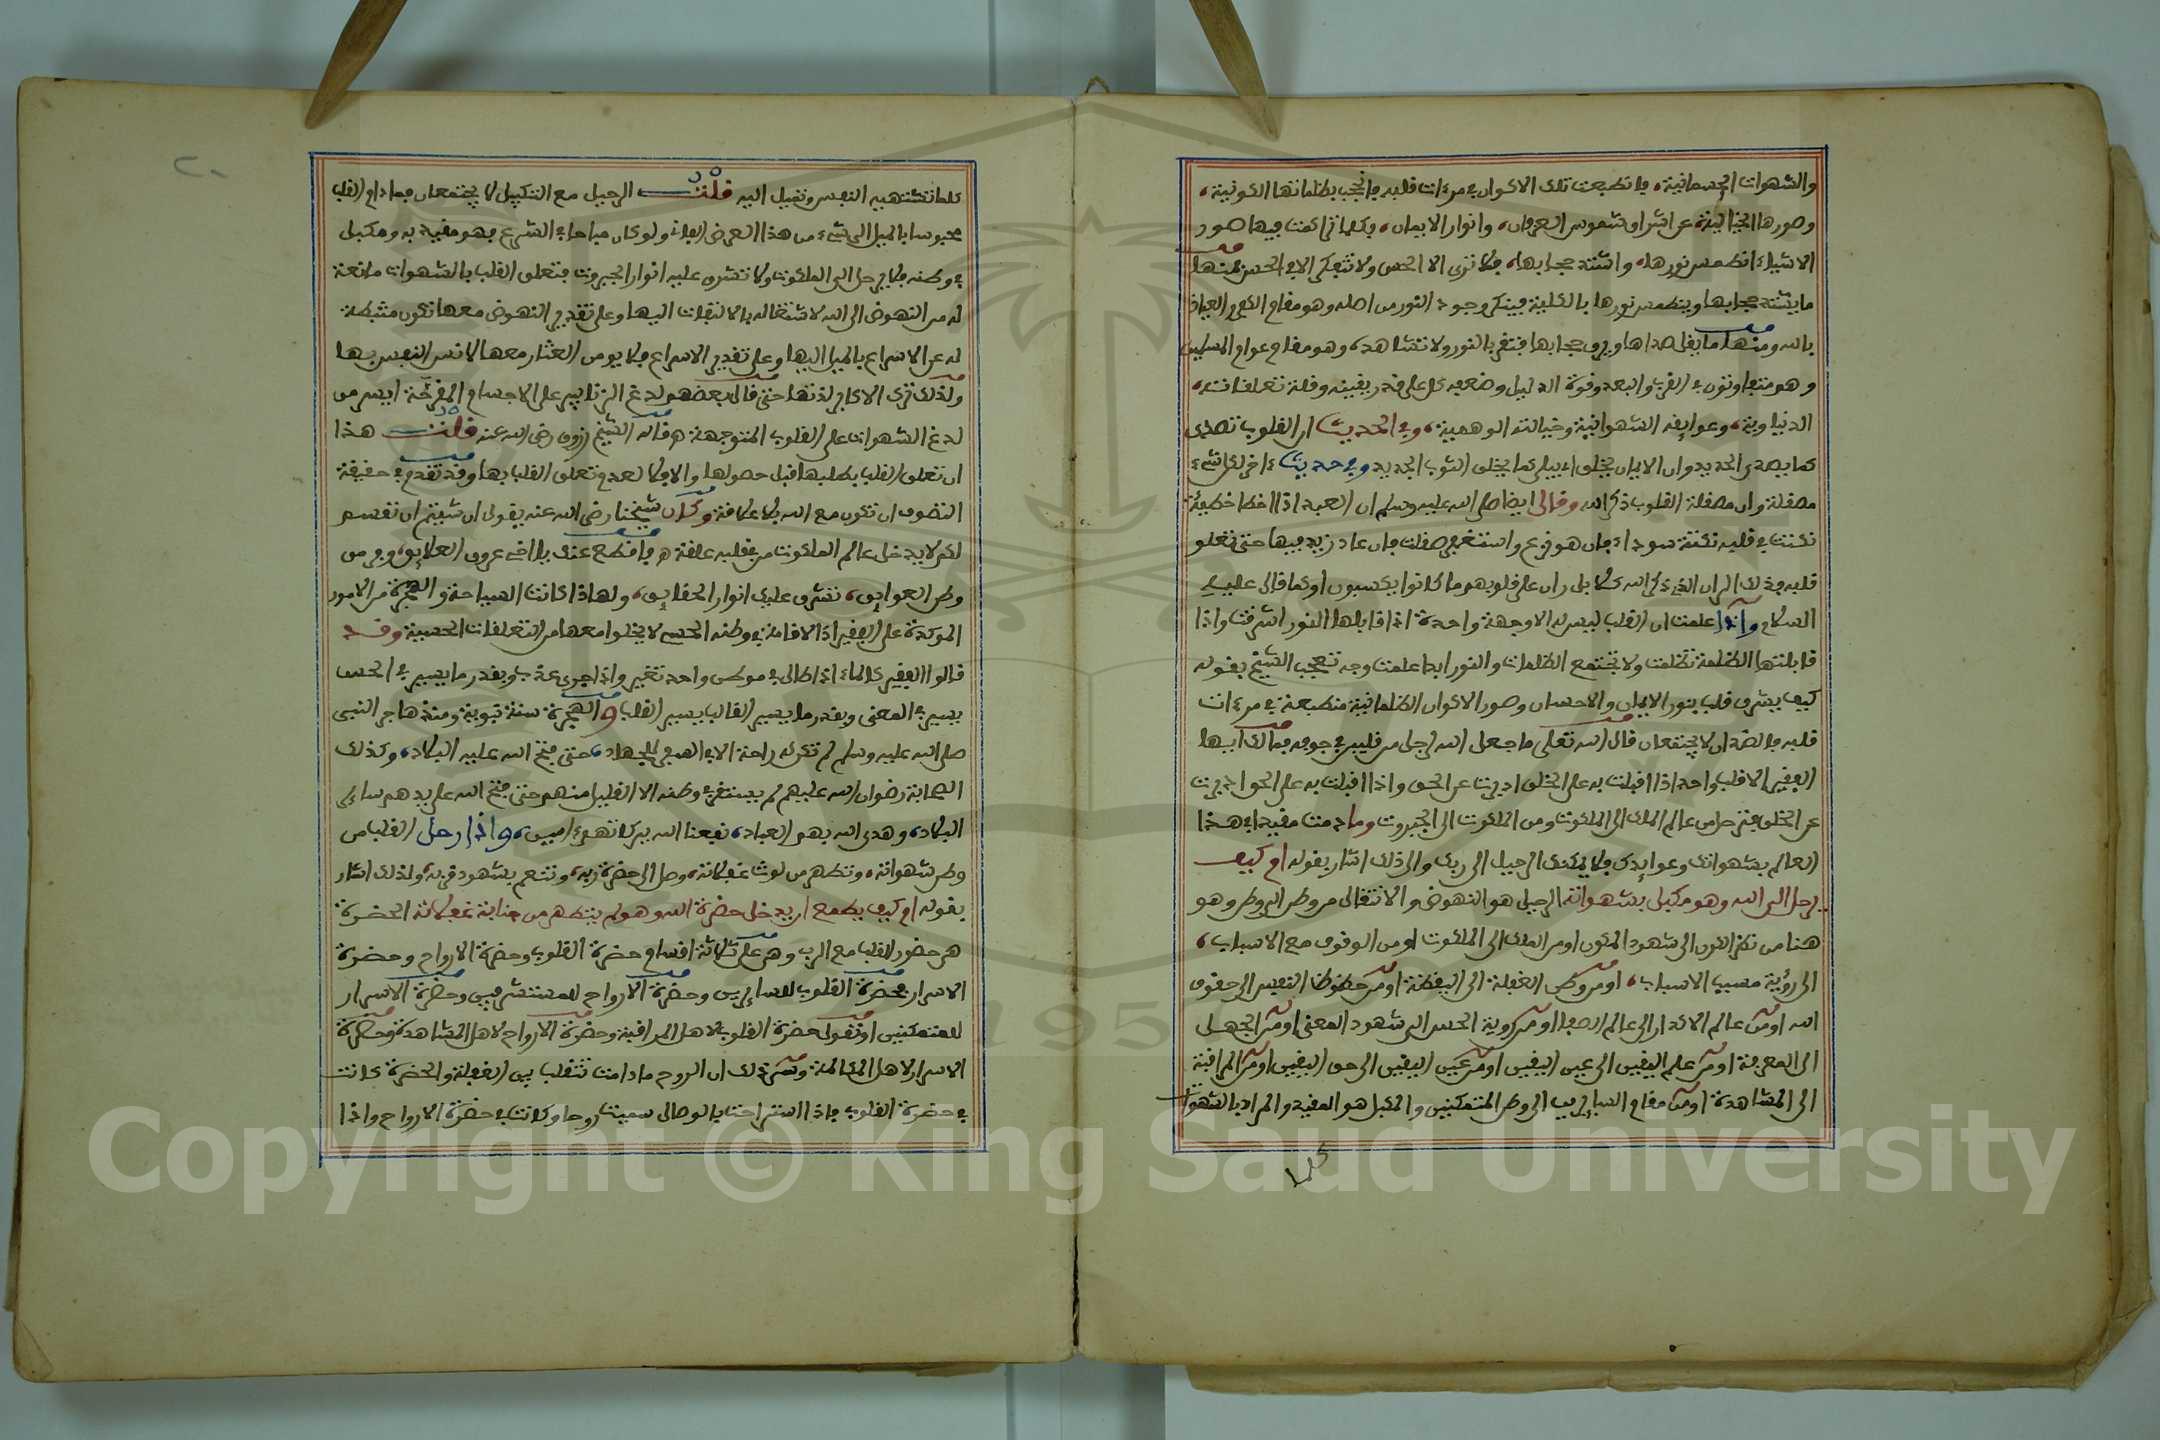 والشهوات الجسمانية، فانطبعت تلك الاكوان في مرءات قلبه فانحجب بظلماتها الكونية،
وصورها الخيالية، عن اشراق شموس العرفان، وانوار الايمان، فكلما تراكمت فيها صور
الاشياء انطمس نورها، واشتد حجابها، فلا ترى الا الحس ولا تتفكر الا في الحس فمنها
ما يشتد حجابها وينطمس نورها بالكلية فينكر وجود النور من اصله وهو مقام الكفر والعياذ
بالله ومنها ما يقل صداها ويرق حجابها فتقر بالنور ولا تشاهده وهو مقام عوام المسلمين
وهم متفاوتون في القرب والبعد وقوة الدليل وضعفه كل على قدر يقينه وقلة تعلقاته،
الدنياوية، وعوايقه الشهوانية وخيالته الوهمية، وفي الحديث ان القلوب تصدى
كما يصدى الحديد وان الايمان يخلق اي يبلى كما يخلق الثوب الجديد وفي حديث ءاخر لكل شيء
مصقلة وان مصقلة القلوب ذكر الله وقال ايضا صلى الله عليه وسلم ان العبد اذا اخطا خطيئة
نكتت في قلبه نكتة سوداء فان هو نزع واستغفر صقلت فان عاد زيد فيها حتى تعلو
قلبه فذلك الران الذي ذكر الله كلا بل ران على قلوبهم ما كانوا يكسبون او كما قال عليه
السلام واذا علمت ان القلب ليس له الا وجهة واحدة اذا قابلها النور اشرقت واذا
قابلتها الظلمة تظلمت ولا تجتمع الظلمات والنور ابدا علمت وجه تعجب الشيخ بقوله
كيف يشرق قلب بنور الايمان والاحسان وصور الاكوان الظلمانية منطبعة في مرءات
قلبه فالضدان لا يجتمعان قال الله تعلى ما جعل الله لرجل من قلبين في جوفه فما لك ايها
الفقير الا قلب واحد اذا اقبلت به على الخلق ادبرت عن الحق واذا اقبلت به على الحق ادبرت
عن الخلق فترحل من عالم الملك الى الملكوت ومن الملكوت الى الجبروت وما دمت مقيدا في هذا
العالم بشهواتك وعوايدك فلا يمكنك الرحيل الى ربك والى ذلك اشار بقوله ام كيف
يرحل الى الله وهو مكبل بشهواته الرحيل هو النهوض والانتقال من وطن الى وطن وهو
هنا من نظر الكون الى شهود المكون او من الملك الى الملكوت او من الوقوف مع الاسباب،
الى رؤية مسبب الاسباب، او من وطن الغفلة الى اليقظة او من حظوظ النفس الى حقوق
الله او من عالم الاكدار الى عالم الصفا او من رؤية الحس الى شهود المعنى او من الجهل
الى المعرفة او من علم اليقين الى عين اليقين او من عين اليقين الى حق اليقين او من المراقبة
الى المشاهدة او من مقام السايرين الى وطن المتمكنين والمكبل هو المقيد والمراد بالشهوات
كلما
٢٠
كلما تشتهيه النفس وتميل اليه قلت الرحيل مع التكبيل لا يجتمعان فما دام القلب
محبوسا بالميل الى شيء من هذا العرض الفاني ولو كان مباحا في الشرع فهو مقيد به ومكبل
في وطنه فلا يرحل الى الملكوت ولا تشرق عليه انوار الجبروت فتعلق القلب بالشهوات مانعة
له من النهوض الى الله لاشتغاله بالالتفات اليها وعلى تقدير النهوض معها تكون مثبطة
له عن الاسراع بالميل اليها وعلى تقدير الاسراع فلا يومن العثار معها لانس النفس بها
ولذلك ترك الاكابر لذتها حتى قال بعضهم لدغ الزنابير على الاجسام المقرحة ايسر من
لدغ الشهوات على القلوب المتوجهة ه قاله الشيخ زروق رضي الله عنه قلت هذا
ان تعلق القلب بطلبها قبل حصولها والا فلا لعدم تعلق القلب بها وقد تقدم في حقيقة
التصوف ان تكون مع الله بلا علاقة وكان شيخنا رضي الله عنه يقول ان شيتم ان نقسم
لكم لا يدخل عالم الملكوت من في قلبه علقة ه فاقطع عنك يا اخي عروق العلايق، وفر من
وطن العوايق، تشرق عليك انوار الحقايق، ولهاذا كانت السياحة والهجرة من الامور
الموكدة على الفقير اذ الاقامة في وطن الحس لا يخلوا معها من التعلقات الحسية وقد
قالوا الفقير كالماء اذا طال في موطن واحد تغير واذا جرى عذب وبقدر ما يسير في الحس
يسير في المعنى وبقدر ما يسير القالب يسير القلب والهجرة سنة نبوية ومنذ هاجر النبي
صلى الله عليه وسلم لم تكن له راحة الا في السفر للجهاد، حتى فتح الله عليه البلاد، وكذلك
الصحابة رضوان الله عليهم لم يستقر في وطنه الا القليل منهم حتى فتح الله على يدهم ساير
البلاد، وهدى الله بهم العباد، نفعنا الله ببركاتهم ءامين، واذا رحل القلب من
وطن شهواته، وتطهر من لوث غفلاته، وصل الى حضرة ربه، وتنعم بشهود قربه، ولذلك اشار
بقوله ام كيف يطمع ان يدخل حضرة الله وهو لم يتطهر من جنابة غفلاته الحضرة
هي حضور القلب مع الرب وهي على ثلاثة اقسام حضرة القلوب وحضرة الارواح وحضرة
الاسرار فحضرة القلوب للسايرين وحضرة الارواح للمستشرفين وحضرة الاسرار
للمتمكنين او تقول حضرة القلوب لاهل المراقبة وحضرة الارواح لاهل المشاهدة وحضرة
الاسرار لاهل المكالمة وسر ذلك ان الروح ما دامت تتقلب بين الغفلة والحضرة كانت
في حضرة القلوب فاذا استراحت بالوصال سميت روحا وكانت في حضرة الارواح واذا
Copyright © King Saud University
195